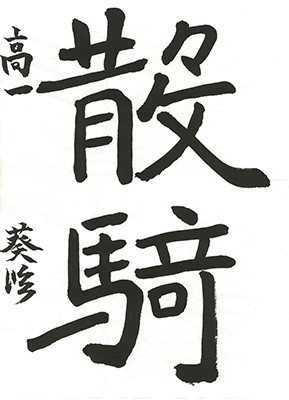 散騎
高一
葵